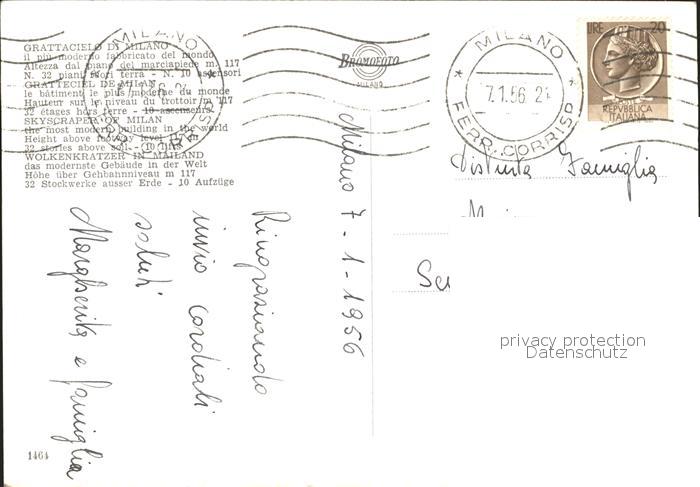 GRATTACIELO DI MILANO
il più moderno fabbricato del mondo
Altezza dal piano del marciapiede m. 117
N. 32 piani fuori terra - N. 10 ascensori
GRATTECIEL DE MILAN
le bâtiment le plus moderne du monde
Hauteur sur le niveau du trottoir m 117
32 étages hors terre - 10 ascenseurs
SKYSCRAPER OF MILAN
the most modern building in the world
Height above footway level m 117
32 stories above soil - 10 lifts
WOLKENKRATZER IN MAILAND
das modernste Gebäude in der Welt
Höhe über Gehbahnniveau m 117
32 Stockwerke ausser Erde - 10 Aufzüge
BROMOFOTO
MILANO
MILANO
7.1.56 21
FERR. CORRISP
LIRE 20
REPVBBLICA
ITALIANA
Milano 7-1-1956
Ringraziando
invio cordiali
saluti
Margherita e famiglia
Distinta Famiglia
privacy protection
Datenschutz
1464